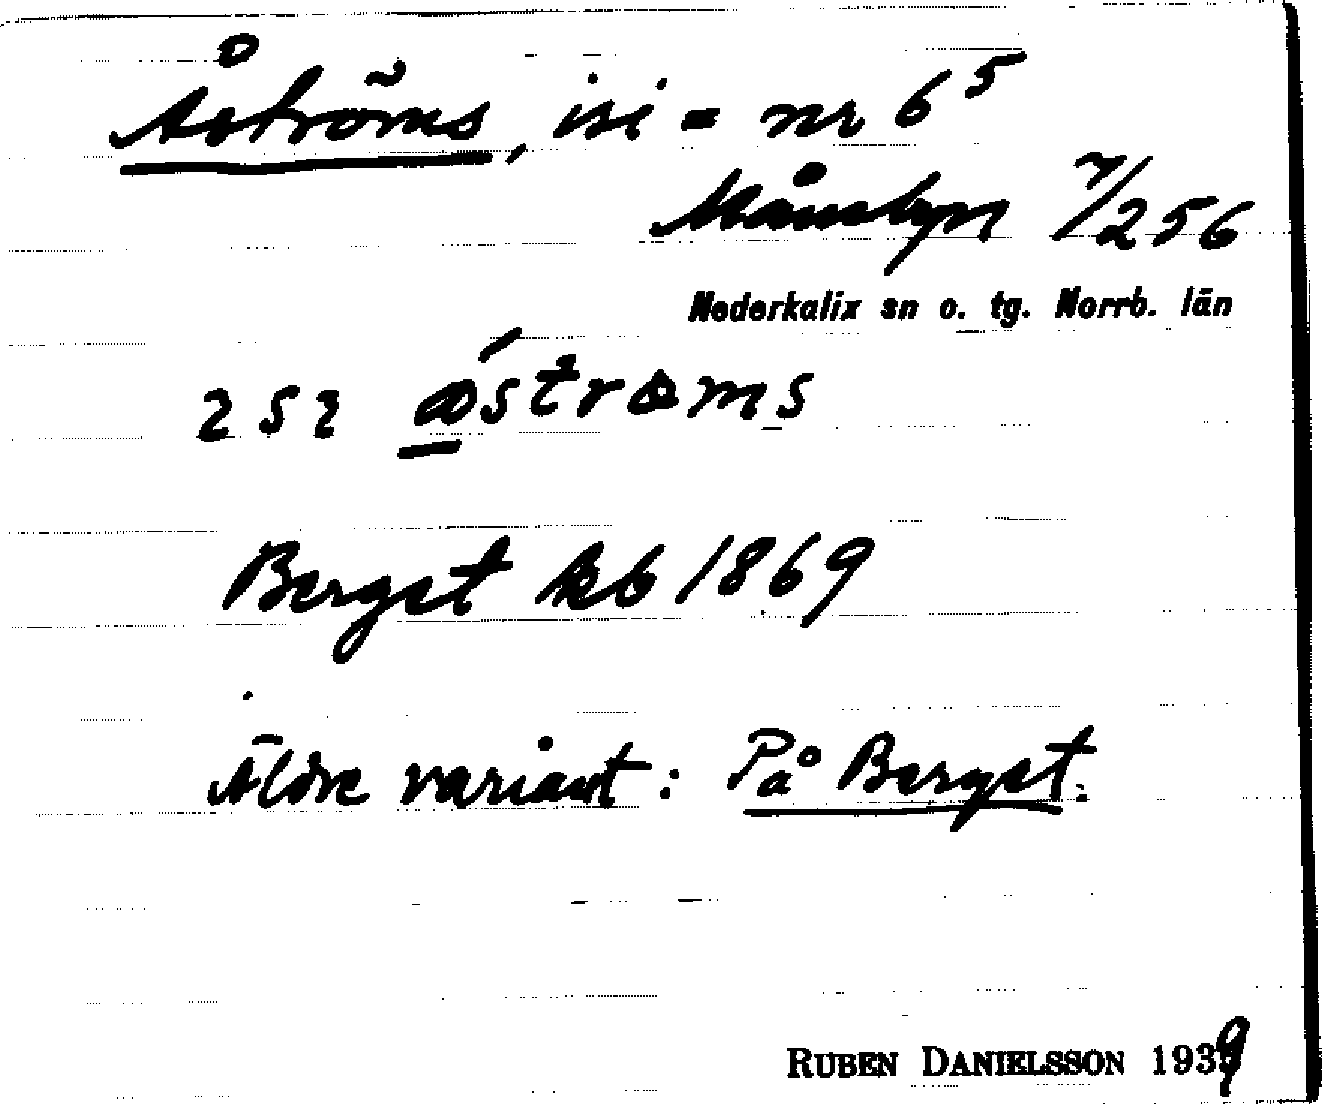 Åströms, isi = nr 6⁵
Månsbyn 7/256
Nederkalix sn o. tg. Norrb. län
252 åstrøms
Bergst kb 1869
Äldre variant: På Bergst.
RUBEN DANIELSSON 1939